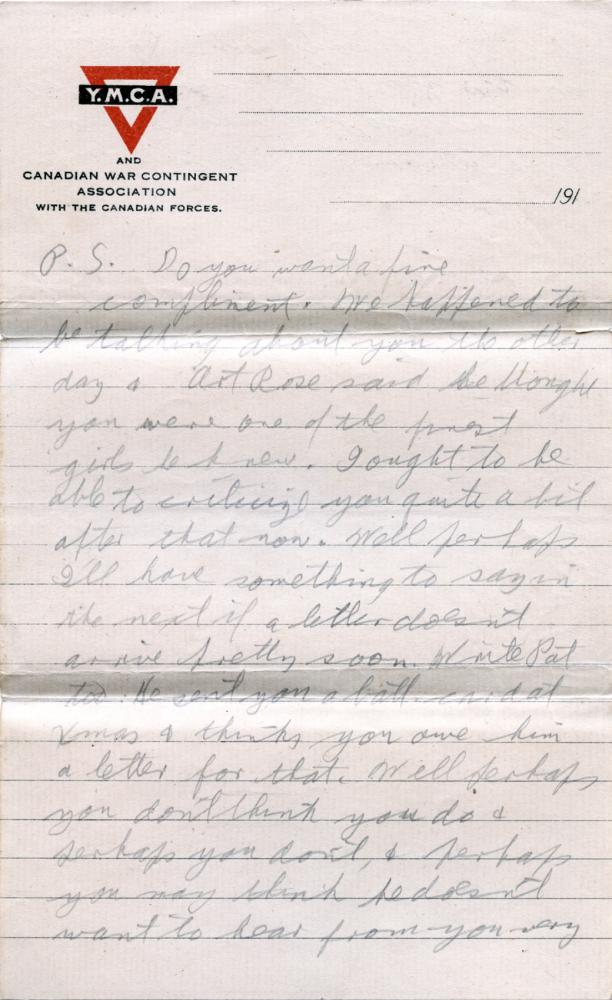 Y.M.C.A.
AND
CANADIAN WAR CONTINGENT
ASSOCIATION
WITH THE CANADIAN FORCES.
191
P. S. Do you want a fine
compliment. We happened to
be talking about you the other
day & Art Rose said he thought
you were one of the finest
girls he knew. I ought to be
able to criticize you quite a bit
after that now. Well perhaps
I'll have something to say in
the next if a letter doesn't
arrive pretty soon. Write Pat
too. He sent you a batt. card at
Xmas & thinks you owe him
a letter for that. Well perhaps
you don't think you do &
perhaps you don't, & perhaps
you may think he doesn't
want to hear from you very